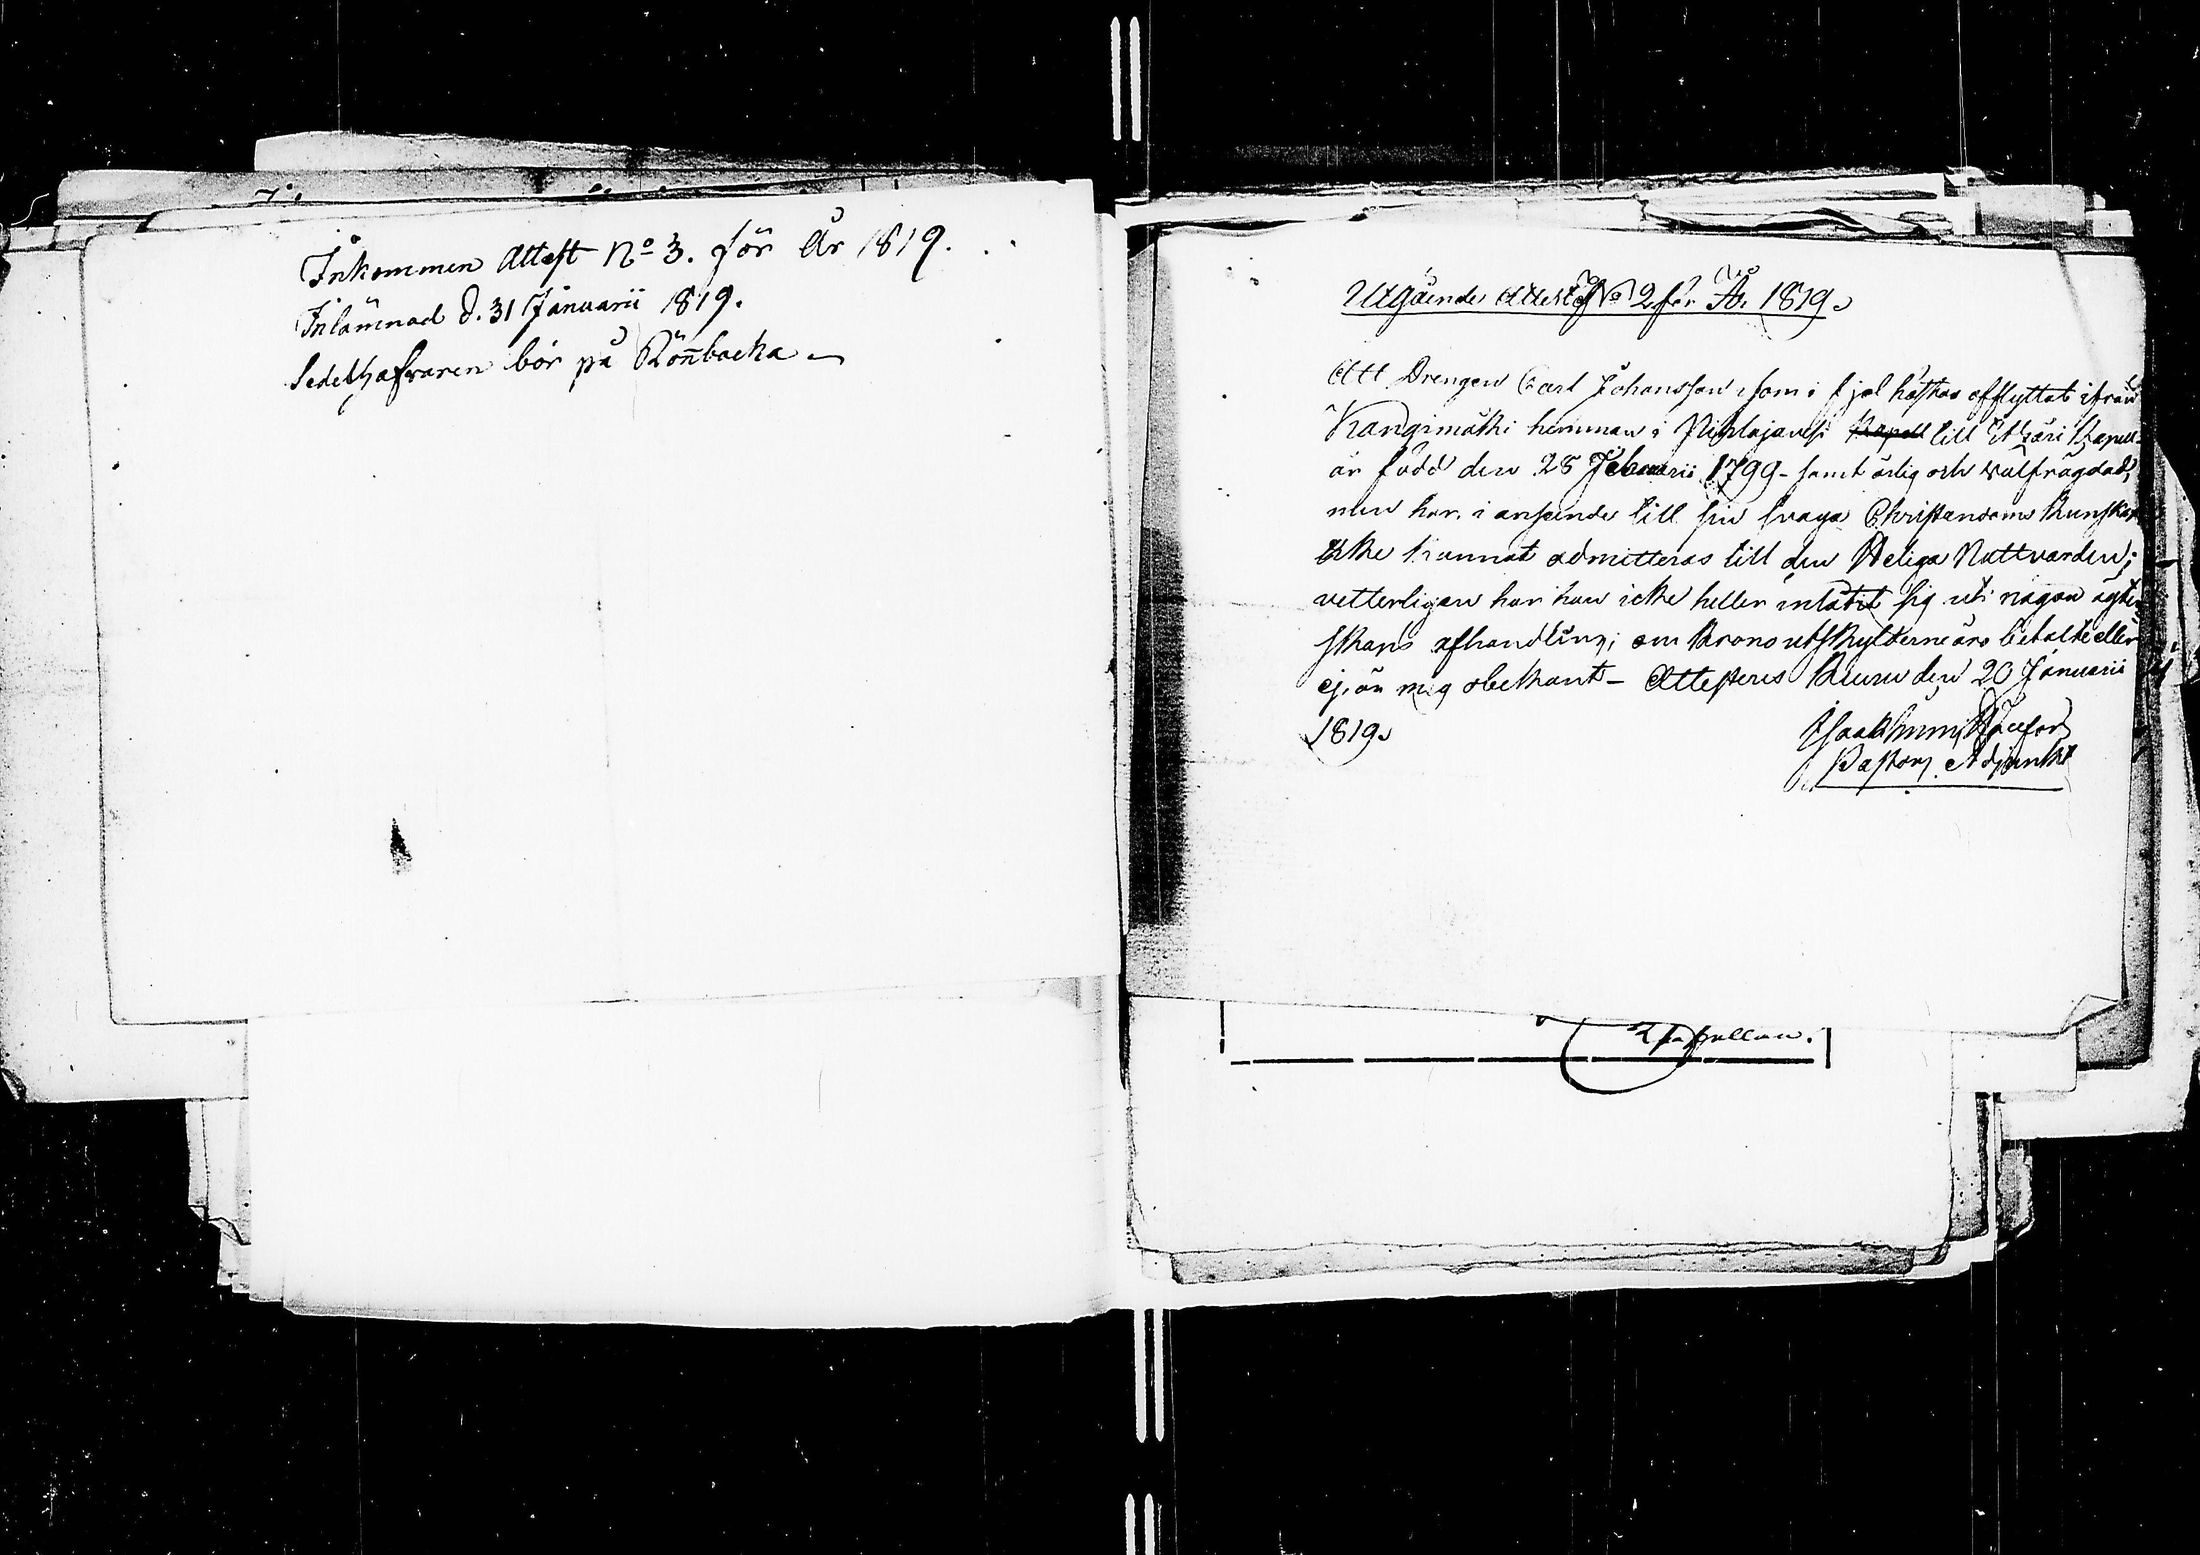 Inkommen Attest No 3. för År 1819.
Inlämnad d. 31 Januarii 1819.
Sedelhafvaren bor på Rönnbacka
Utgående Attest No 2 för År 1819.
Att Drengen Carl Johansson som i fjol höstas afflyttat ifrån
Kangimäki hemman i Pihlajavesi Kapell till Etzäri Kapell
är född den 28 Februarii 1799 - samt ärlig och välfrägdad,
men har i anseende till sin svaga Christendoms kunskap
icke kunnat admitteras till den Heliga Nattvarden;
vetterligen har han icke heller inlåtit sig uti någon ägten
skaps afhandling; om Krono utskylderne äro betalte eller
ej, är mig obekant - Attesteras Keuru den 20 Januarii
1819.
Pastors Adjunkt